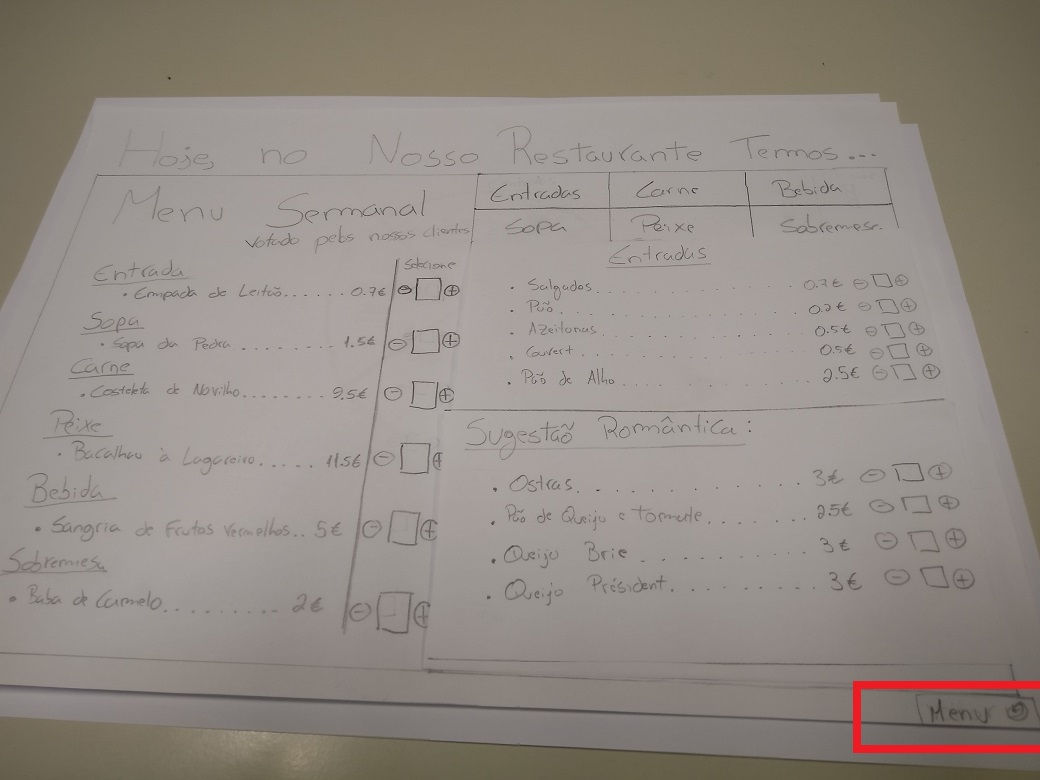 Hoje, no Nosso Restaurante Temos...
Menu Semanal
Votado pelos nossos clientes
Selecione
Entrada
• Empada de Leitão...... 0.7€ - +
Sopa
• Sopa da Pedra......... 1.5€ - +
Carne
• Costeleta de Novilho........ 9.5€ - +
Peixe
• Bacalhau à Lagareiro..... 11.5€ - +
Bebida
• Sangria de Frutos Vermelhos.. 5€ - +
Sobremesa
• Baba de Camelo......... 2€ - +
Entradas Carne Bebida
Sopa Peixe Sobremesa
Entradas
• Salgados............ 0.7€ - +
• Pão............ 0.2€ - +
• Azeitonas............ 0.5€ - +
• Couvert............ 0.5€ - +
• Pão de Alho............ 2.5€ - +
Sugestão Romântica:
• Ostras............ 3€ - +
• Pão de Queijo e Tomate........ 2.5€ - +
• Queijo Brie.......... 3€ - +
• Queijo Président.......... 3€ - +
Menu